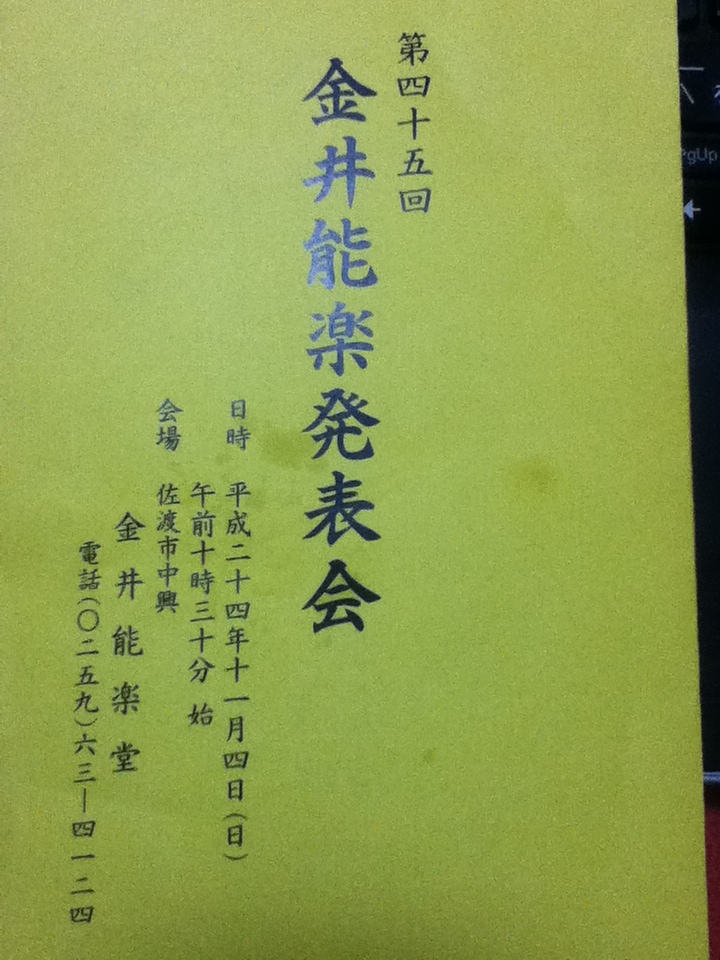 第四十五回
金井能楽発表会
日時 平成二十四年十一月四日(日)
午前十時三十分 始
会場 佐渡市中興
金井能楽堂
電話(〇二五九)六三―四一二四
PgUp